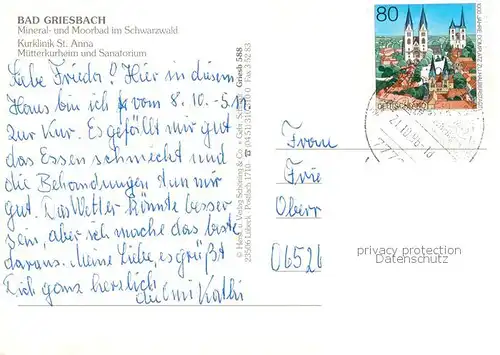 BAD GRIESBACH
Mineral- und Moorbad im Schwarzwald
Kurklinik St. Anna
Mütterkurheim und Sanatorium
Liebe Frieda! Hier in diesem
Haus bin ich vom 8.10. - 5.11
zur Kur. Es gefällt mir gut
das Essen schmeckt und
die Behandlungen tun mir
gut. Das Wetter könnte besser
sein, aber ich mache das beste
daraus. Meine Liebe, es grüßt
Dich ganz herzlich
Kathi
Griesb 588
Schöning & Co
Lübeck
80
1000 JAHRE DOMPLATZ ZU HALBERSTADT
DEUTSCHLAND
Frau
Frie
Oberr
06526
privacy protection
Datenschutz